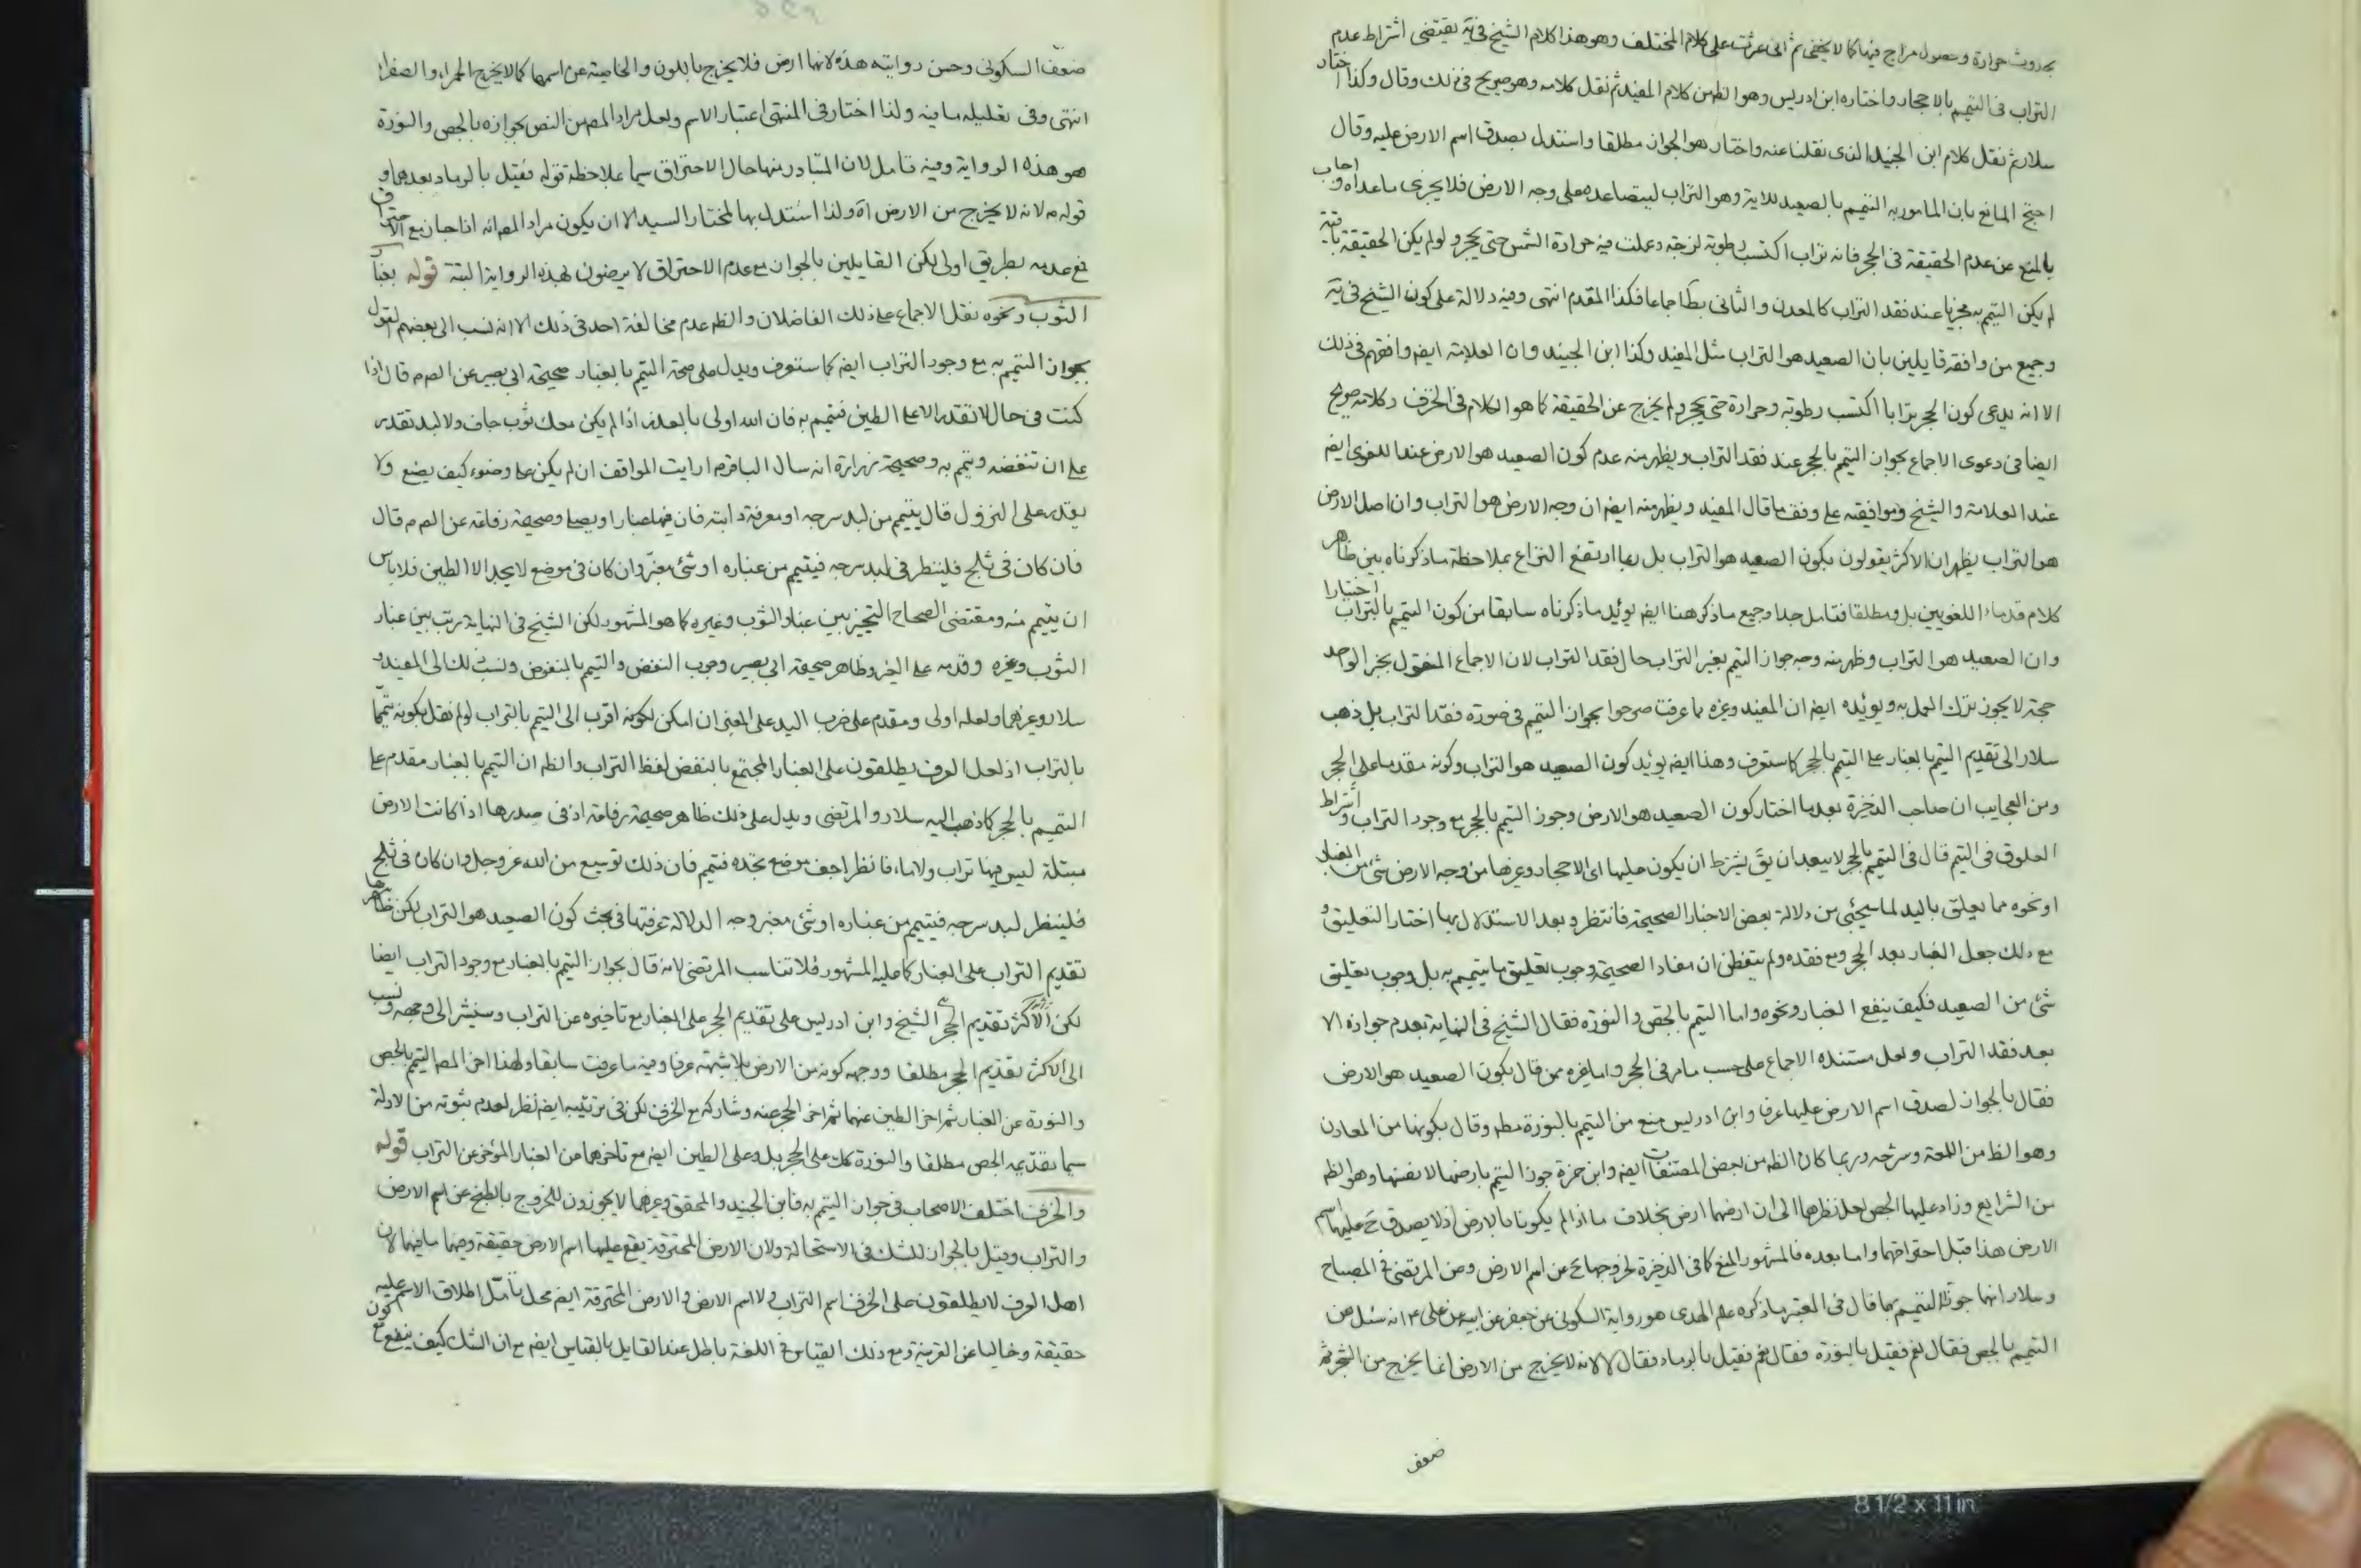 بحدوث حرارة وحصول مزاج فيها كما لا يخفى ثم انى عثرت على كلام المختلف وهو هذا كلام الشيخ فى يه يقتضى اشتراط عدم
التراب فى التيمم بالاحجار واختاره ابن ادريس وهو الظ من كلام المفيد ثم نقل كلامه وهو صريح فى ذلك وقال وكذا اختار
سلار ثم نقل كلام ابن الجنيد الذى نقلنا عنه واختار هو الجواز مطلقا واستدل بصدق اسم الارض عليه وقال
احتج المانع بان المامور به التيمم بالصعيد للاية وهو التراب لتصاعده على وجه الارض فلا يجزى ما عداه واجاب
بالمنع عن عدم الحقيقة فى الحجر فانه تراب اكتسب رطوبة لزجة وعملت فيه حرارة الشمس حتى تحجر ولو لم يكن الحقيقة باقية
لم يكن التيمم به مجزيا عند فقد التراب كالمعدن والثانى بط اجماعا فكذا المقدم انتهى وفيه دلالة على كون الشيخ فى يه
وجميع من وافقه قايلين بان الصعيد هو التراب مثل المفيد وكذا ابن الجنيد وان العلامة ايضه وافقهم فى ذلك
الا انه يدعى كون الحجر ترابا اكتسب رطوبة وحرارة حتى تحجر ولم يخرج عن الحقيقة كما هو الكلام فى الخزف وكلامه صريح
ايضا فى دعوى الاجماع بجواز التيمم بالحجر عند فقد التراب ويظهر منه عدم كون الصعيد هو الارض عند اللغوى ايضه
عند العلامة والشيخ وموافقيه على وفق ما قال المفيد ويظهر منه ايضه ان وجه الارض هو التراب وان اصل الارض
هو التراب يظهر ان الاكثر يقولون بكون الصعيد هو التراب بل ربما ارتفع النزاع بملاحظة ما ذكرناه بين ظاهر
كلام قدماء اللغويين بل ومطلقا فتامل جدا وجميع ما ذكر هنا ايضه يؤيد ما ذكرناه سابقا من كون التيمم بالتراب اختيارا
وان الصعيد هو التراب وظهر منه وجه جواز التيمم بغير التراب حال فقد التراب لان الاجماع المنقول بخبر الواحد
حجة لا يجوز ترك العمل به ويؤيده ايضه ان المفيد وغيره ما عرفت صرحوا بجواز التيمم فى صورة فقد التراب بل ذهب
سلار الى تقديم التيمم بالغبار على التيمم بالحجر كما ستعرف وهذا ايضه يؤيد كون الصعيد هو التراب وكونه مقدما على الحجر
ومن العجايب ان صاحب الذخيرة بعد ما اختار كون الصعيد هو الارض وجوز التيمم بالحجر مع وجود التراب واشتراط
العلوق فى التيمم قال فى التيمم بالحجر لا يبعد ان يق يشترط ان يكون عليها اى الاحجار وغيرها من وجه الارض شئ من الغبار
او نحوه مما يعلق باليد لما سيجئ من دلالة بعض الاخبار الصحيحة فانتظر وبعد الاستدلال بها اختار التعليق و
مع ذلك جعل الغبار بعد الحجر ومع فقده ولم يتفطن ان مفاد الصحيحة وجوب تعليق ما يتيمم به بل وجوب تعليق
شئ من الصعيد فكيف ينفع الغبار ونحوه واما التيمم بالجص والنورة فقال الشيخ فى النهاية بعدم جوازه الا
بعد فقد التراب ولعل مستنده الاجماع على حسب ما مر فى الحجر واما غيره ممن قال بكون الصعيد هو الارض
فقال بالجواز لصدق اسم الارض عليها عرفا وابن ادريس منع من التيمم بالنورة مطه وقال بكونها من المعادن
وهو الظ من اللغة وشرحه وربما كان الظ من بعض المصنفات ايضه وابن حمزة جوز التيمم بارضها لا نفسها وهو الظ
من الشرايع وزاد عليها الجص لعل نظرهما الى ان ارضهما ارض بخلاف ما اذا لم يكونا بالارض اذ لا يصدق ح عليهما اسم
الارض هذا قبل احتراقهما واما بعده فالمشهور المنع كما فى الذخيرة لخروجهما ح عن اسم الارض وعن المرتضى فى المصباح
وسلار انهما جوزا التيمم بهما قال فى المعتبر ما ذكره علم الهدى هو رواية السكونى عن جعفر عن ابيه عن على ع انه سئل عن
التيمم بالجص فقال نعم فقيل بالنورة فقال نعم فقيل بالرماد فقال لا لانه لا يخرج من الارض انما يخرج من الشجر ثم
ضعف
ضعف السكونى وحسن روايته هذه لانها ارض فلا يخرج باللون والخاصية عن اسمها كما لا يخرج الحمراء والصفراء
انتهى وفى تعليله ما فيه ولذا اختار فى المنتهى اعتبار الاسم ولعل مراد المصه من النص بجوازه بالجص والنورة
هو هذه الرواية وفيه تامل لان المتبادر منها حال الاحتراق سيما بملاحظة قوله فقيل بالرماد بعدهما و
قوله ع لانه لا يخرج من الارض اه ولذا استدل بها لمختار السيد الا ان يكون مراد المصه انه اذا جاز مع الاحتراق
فمع عدمه بطريق اولى لكن القايلين بالجواز مع عدم الاحتراق لا يرضون بهذه الرواية البتة قوله بغبار
الثوب ونحوه نقل الاجماع على ذلك الفاضلان والظه عدم مخالفة احد فى ذلك الا انه نسب الى بعضهم القول
بجواز التيمم به مع وجود التراب ايضه كما ستعرف ويدل على صحة التيمم بالغبار صحيحة ابى بصير عن الص ع قال اذا
كنت فى حال لا تقدر الا على الطين فتيمم به فان الله اولى بالعذر اذا لم يكن معك ثوب جاف ولا لبد تقدر
على ان تنفضه وتيمم به وصحيحة زرارة انه سال الباقر ع ارايت المواقف ان لم يكن على وضوء كيف يصنع ولا
يقدر على النزول قال يتيمم من لبد سرجه او معرفة دابته فان فيها غبارا ويصلى وصحيحة رفاعة عن الص ع قال
فان كان فى ثلج فلينظر فى لبد سرجه فيتيمم من غباره او شئ مغبر وان كان فى موضع لا يجد الا الطين فلا باس
ان يتيمم منه ومقتضى الصحاح التخيير بين غبار الثوب وغيره كما هو المشهور لكن الشيخ فى النهاية رتب بين غبار
الثوب وغيره وقدمه على الغير وظاهر صحيحة ابى بصير وجوب النفض والتيمم بالمنفوض ونسب ذلك الى المفيد و
سلار وغيرهما ولعله اولى ومقدم على ضرب اليد على المغبر ان امكن لكونه اقرب الى التيمم بالتراب لو لم نقل بكونه تيمما
بالتراب اذ لعل العرف يطلقون على الغبار المجتمع بالنفض لفظ التراب والظه ان التيمم بالغبار مقدم على
التيمم بالحجر كما ذهب اليه سلار والمرتضى ويدل على ذلك ظاهر صحيحة رفاعة اذ فى صدرها اذا كانت الارض
مبتلة ليس فيها تراب ولا ماء فانظر اجف موضع تجده فتيمم فان ذلك توسيع من الله عز وجل وان كان فى ثلج
فلينظر لبد سرجه فيتيمم من غباره او شئ مغبر وجه الدلالة عرفتها فى بحث كون الصعيد هو التراب لكن ظاهرها
تقديم التراب على الغبار كما عليه المشهور فلا تناسب المرتضى لانه قال بجواز التيمم بالغبار مع وجود التراب ايضا
لكن الاكثر تقديم الحجر الشيخ وابن ادريس على تقديم الحجر على الغبار مع تاخيره عن التراب وسنشير الى وجهه ونسب
الى الاكثر تقديم الحجر مطلقا ووجهه كونه من الارض بلا شبهة عرفا وفيه ما عرفت سابقا ولهذا اخر المصه التيمم بالجص
والنورة عن الغبار ثم اخر الطين عنهما ثم اخر الحجر عنه وشاركه مع الخزف لكن فى ترتيبه ايضه نظر لعدم ثبوته من الادلة
سيما تقديمه الجص مطلقا والنورة كك على الحجر بل وعلى الطين ايضه مع تاخرهما من الغبار المؤخر عن التراب قوله
والخزف اختلف الاصحاب فى جواز التيمم به فابن الجنيد والمحقق وغيرهما لا يجوزون للخروج بالطبخ عن اسم الارض
والتراب وقيل بالجواز للشك فى الاستحالة ولان الارض المحترقة يقع عليها اسم الارض حقيقة وفيهما ما فيهما لان
اهل العرف لا يطلقون على الخزف اسم التراب ولا اسم الارض والارض المحترقة ايضه محل تامل اطلاق الاسم عليه
حقيقة وخاليا عن القرينة ومع ذلك القياس فى اللغة باطل عند القايل بالقياس ايضه مع ان الشك كيف ينفع مع كون